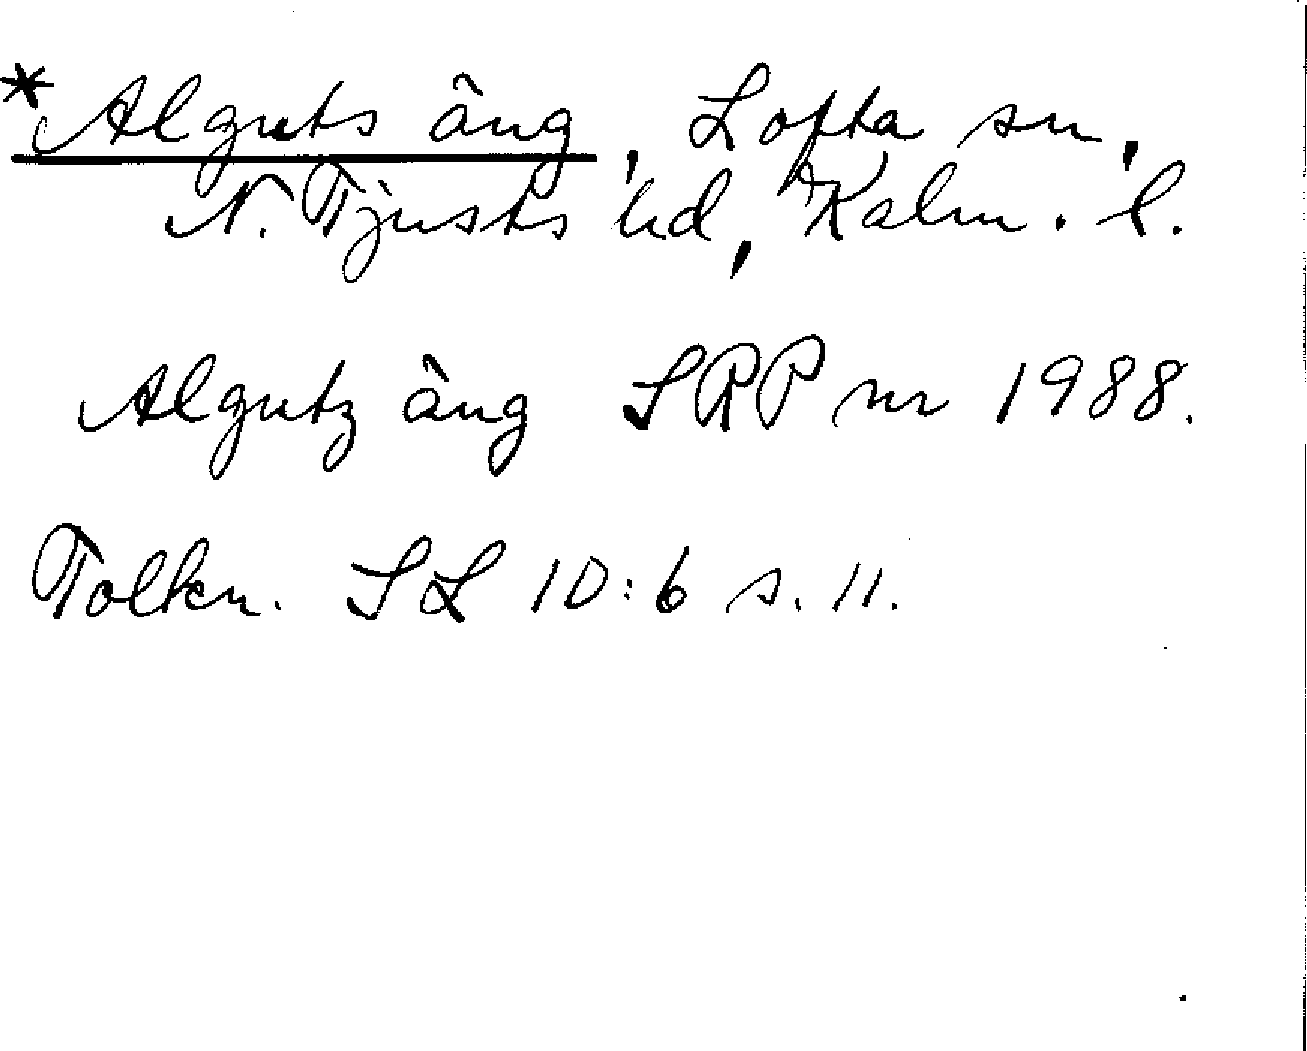 *Alguts äng, Lofta sn,
N. Tjusts hd, Kalm. l.
Algutz äng SRP nr 1988.
Tolkn. SL 10:6 s. 11.